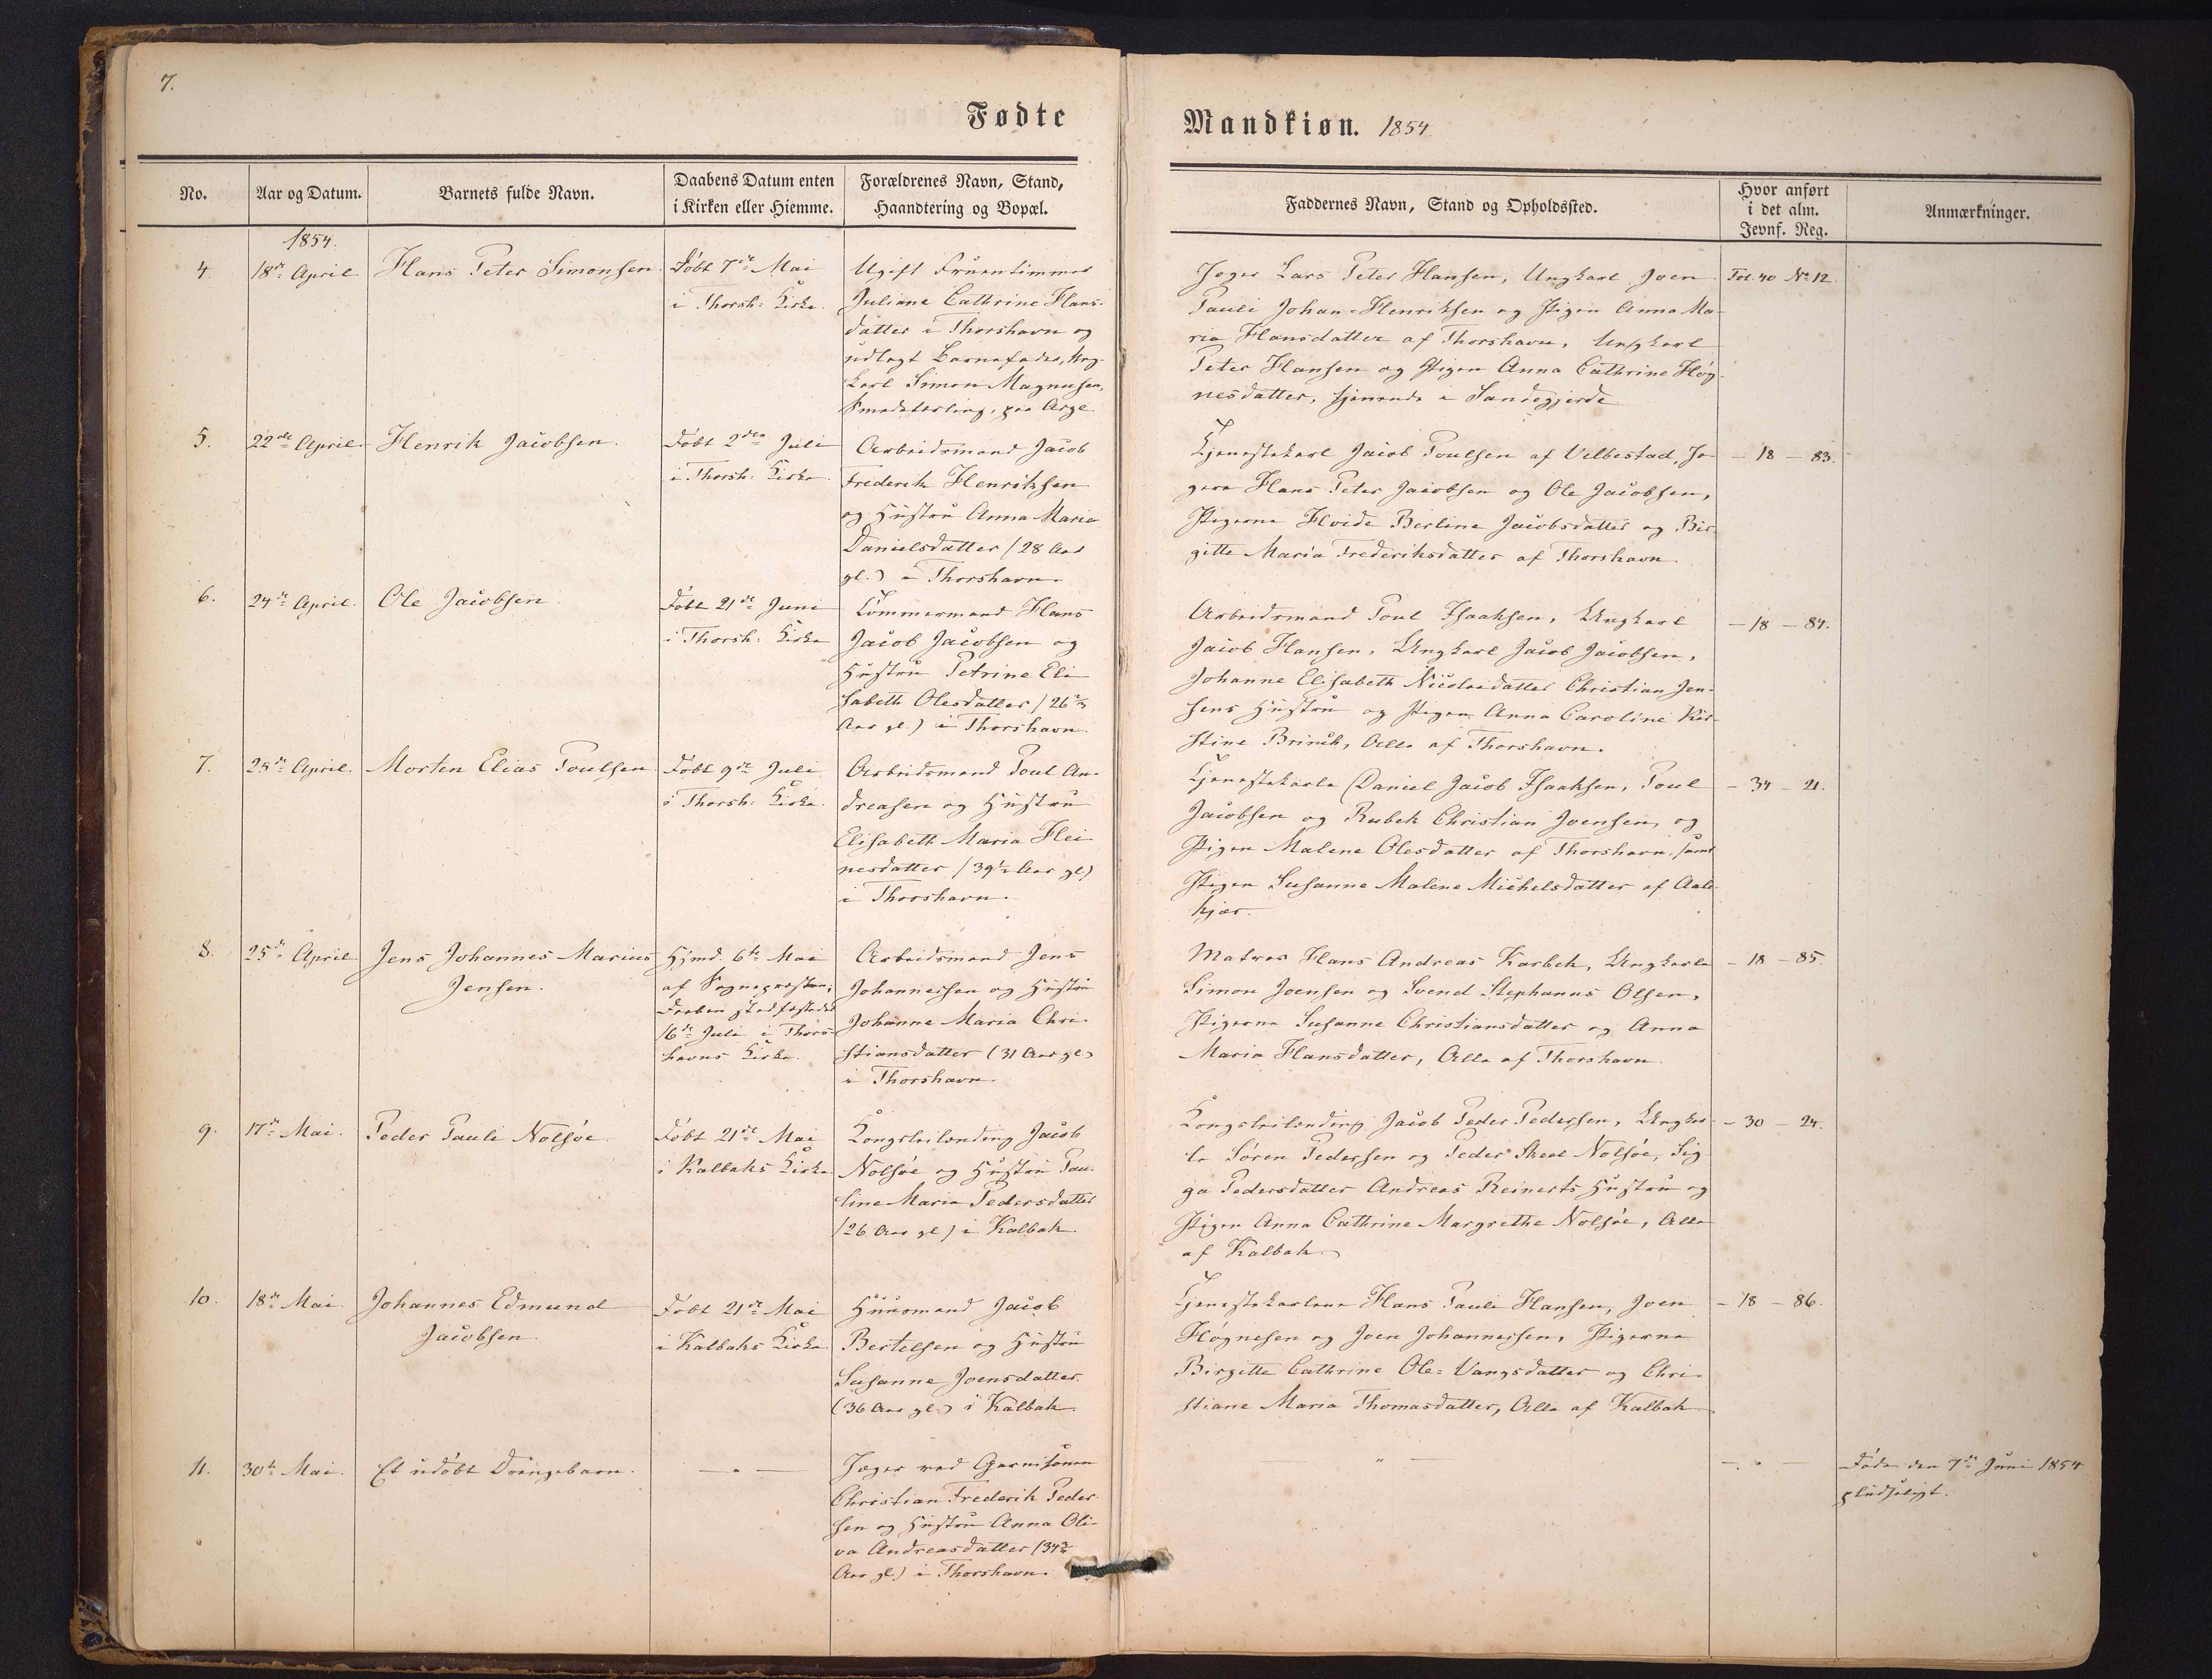 7.
Fødte
Mandkiøn. 1854.
No.
Aar og Datum.
Barnets fulde Navn.
Daabens Datum enten
i Kirken eller Hiemme.
Forældrenes Navn, Stand,
Haandtering og Bopæl.
Faddernes Navn, Stand og Opholdssted.
Hvor anført
i det alm.
Jevnf. Reg.
Anmærkninger.
1854.
4.
18de April
Hans Peter Simonsen
Døbt 7de Mai
i Thorsh: Kirke.
Ugift Fruentimmer
Juliane Cathrine Hans-
datter i Thorshavn og
udlagt Barnefader, Ung-
karl Simon Magnusen,
paa Arge
Jæger Lars Peter Hansen, Ungkarl Joen
Pauli Johan-Henriksen og Pigen Anna Ma-
ria Hansdatter af Thorshavn, Ungkarl
Peter Hansen og Pigen Anna Cathrine Høg-
nesdatter, tjenende i Sandegjerde
Fol. 40 No 12.
5.
22de April
Henrik Jacobsen.
Døbt 2den Juli
i Thorsh: Kirke
Arbeidsmand Jacob
Frederik Henriksen
og Hustru Anna Maria
Danielsdatter (28 Aar
gl.) i Thorshavn.
Tjenestekarl Jacob Poulsen af Velbestad, Jæ-
gere Hans Peter Jacobsen og Ole Jacobsen,
Pigerne Hvide Berline Jacobsdatter og Bir-
gitte Maria Frederiksdatter af Thorshavn
- 18 - 83.
6.
24de April.
Ole Jacobsen
Døbt 21de Juni
i Thorsh: Kirke
Tømmermand Hans
Jacob Jacobsen og
Hustru Petrine Eli-
sabeth Olesdatter (26 2/3
Aar gl.) i Thorshavn.
Arbeidsmand Poul Isaaksen, Ungkarl
Jacob Hansen, Ungkarl Jacob Jacobsen,
Johanne Elisabeth Nicolaidatter Christian Jen-
sens Hustru og Pigen Anna Caroline Kir-
stine Brinck, Alle af Thorshavn.
- 18 - 84.
7.
25de April.
Morten Elias Poulsen
Døbt 9de Juli
i Thorsh: Kirke.
Arbeidsmand Poul An-
dreasen og Hustru
Elisabeth Maria Hei-
nesdatter (39 1/2 Aar gl)
i Thorshavn.
Tjenestekarle Daniel Jacob Isaaksen, Poul
Jacobsen og Rubek Christian Joensen, og
Pigen Malene Olesdatter af Thorshavn, samt
Pigen Susanne Malene Michelsdatter af Aale-
kjær.
- 34 - 21.
8.
25de April
Jens Johannes Marius
Jensen.
Hjmd. 6te Mai
af Sognepræsten;
Daaben stadfæstedes
16de Juli i Thors-
havns Kirke.
Arbeidsmand Jens
Johannessen og Hustru
Johanne Maria Chri-
stiansdatter (31 Aar gl)
i Thorshavn.
Matros Hans Andreas Karbek, Ungkarle
Simon Joensen og Svend Stephanus Olsen,
Pigerne Susanne Christiansdatter og Anna
Maria Hansdatter, Alle af Thorshavn.
- 18 - 85.
9.
17de Mai.
Peder Pauli Nolsöe.
Døbt 21de Mai
i Kalbaks Kirke
Kongsleilending Jacob
Nolsöe og Hustru Pau-
line Maria Pedersdatter
(26 Aar gl) i Kalbak
Kongsleilending Jacob Peder Pedersen, Ungkar-
le Søren Pedersen og Peder Skeel Nolsöe, Sig-
ga Pedersdatter Andreas Reinerts Hustru og
Pigen Anna Cathrine Margrethe Nolsöe, Alle
af Kalbak.
- 30 - 24.
10.
18de Mai.
Johannes Edmund
Jacobsen
Døbt 21de Mai
i Kalbaks Kirke
Huusmand Jacob
Bertelsen og Hustru
Susanne Joensdatter
(36 Aar gl.) i Kalbak
Tjenestekarlene Hans Pauli Hansen, Joen
Høgnesen og Joen Johannessen, Pigerne
Birgitte Cathrine Ole-Vangsdatter og Chri-
stiane Maria Thomasdatter, Alle af Kalbak
- 18 - 86.
11.
30te Mai.
Et udøbt Drengebarn.
— " —
Jæger ved Garnisonen
Christian Frederik Peder-
sen og Hustru Anna Oli-
va Andreasdatter (34 3/4
Aar gl.) i Thorshavn.
" —
— " —
Døde den 7de Juni 1854
pludseligt.